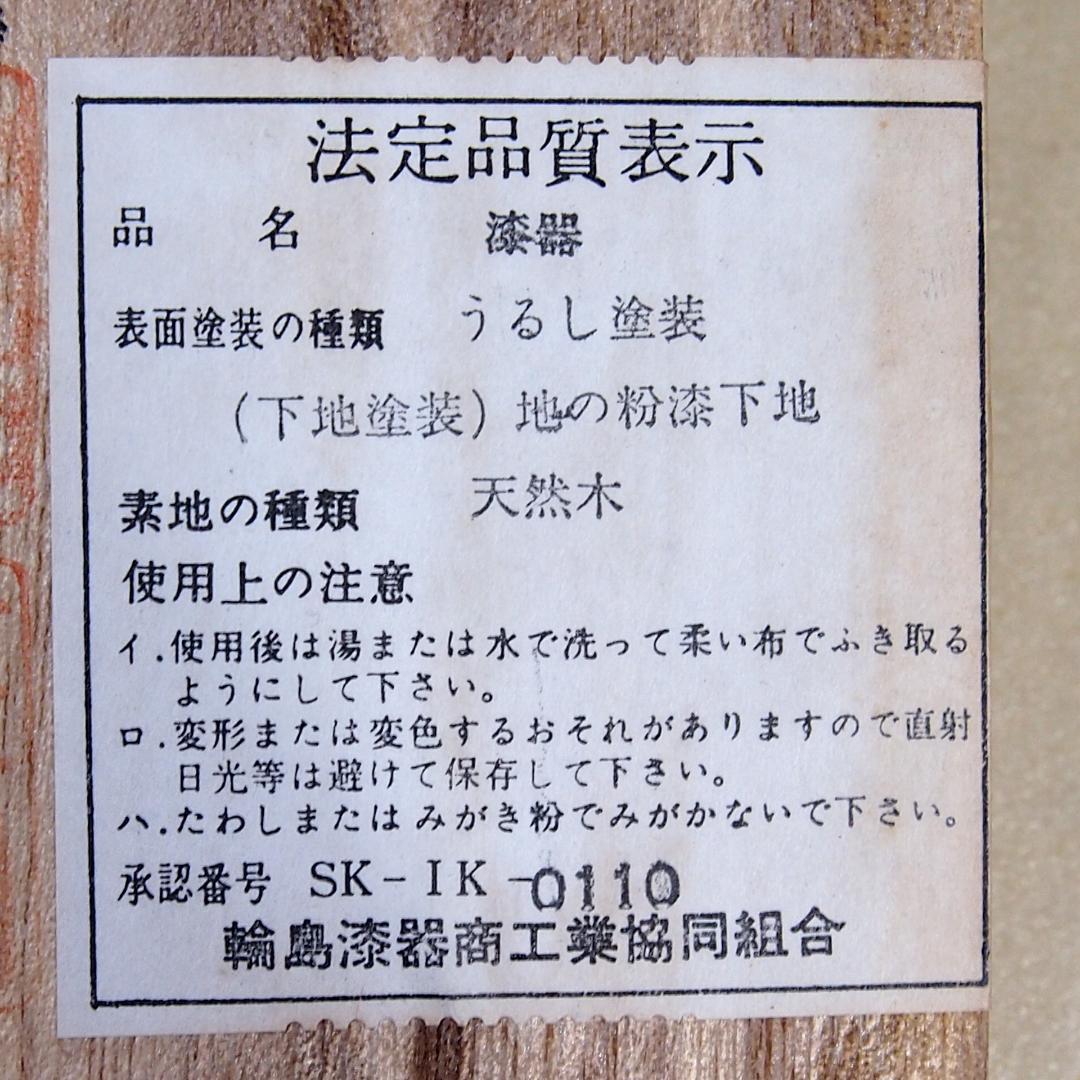 法定品質表示
品名 漆器
表面塗装の種類 うるし塗装
(下地塗装) 地の粉漆下地
素地の種類 天然木
使用上の注意
イ.使用後は湯または水で洗って柔い布でふき取る
ようにして下さい。
ロ.変形または変色するおそれがありますので直射
日光等は避けて保存して下さい。
ハ.たわしまたはみがき粉でみがかないで下さい。
承認番号 SK-IK-0110
輪島漆器商工業協同組合